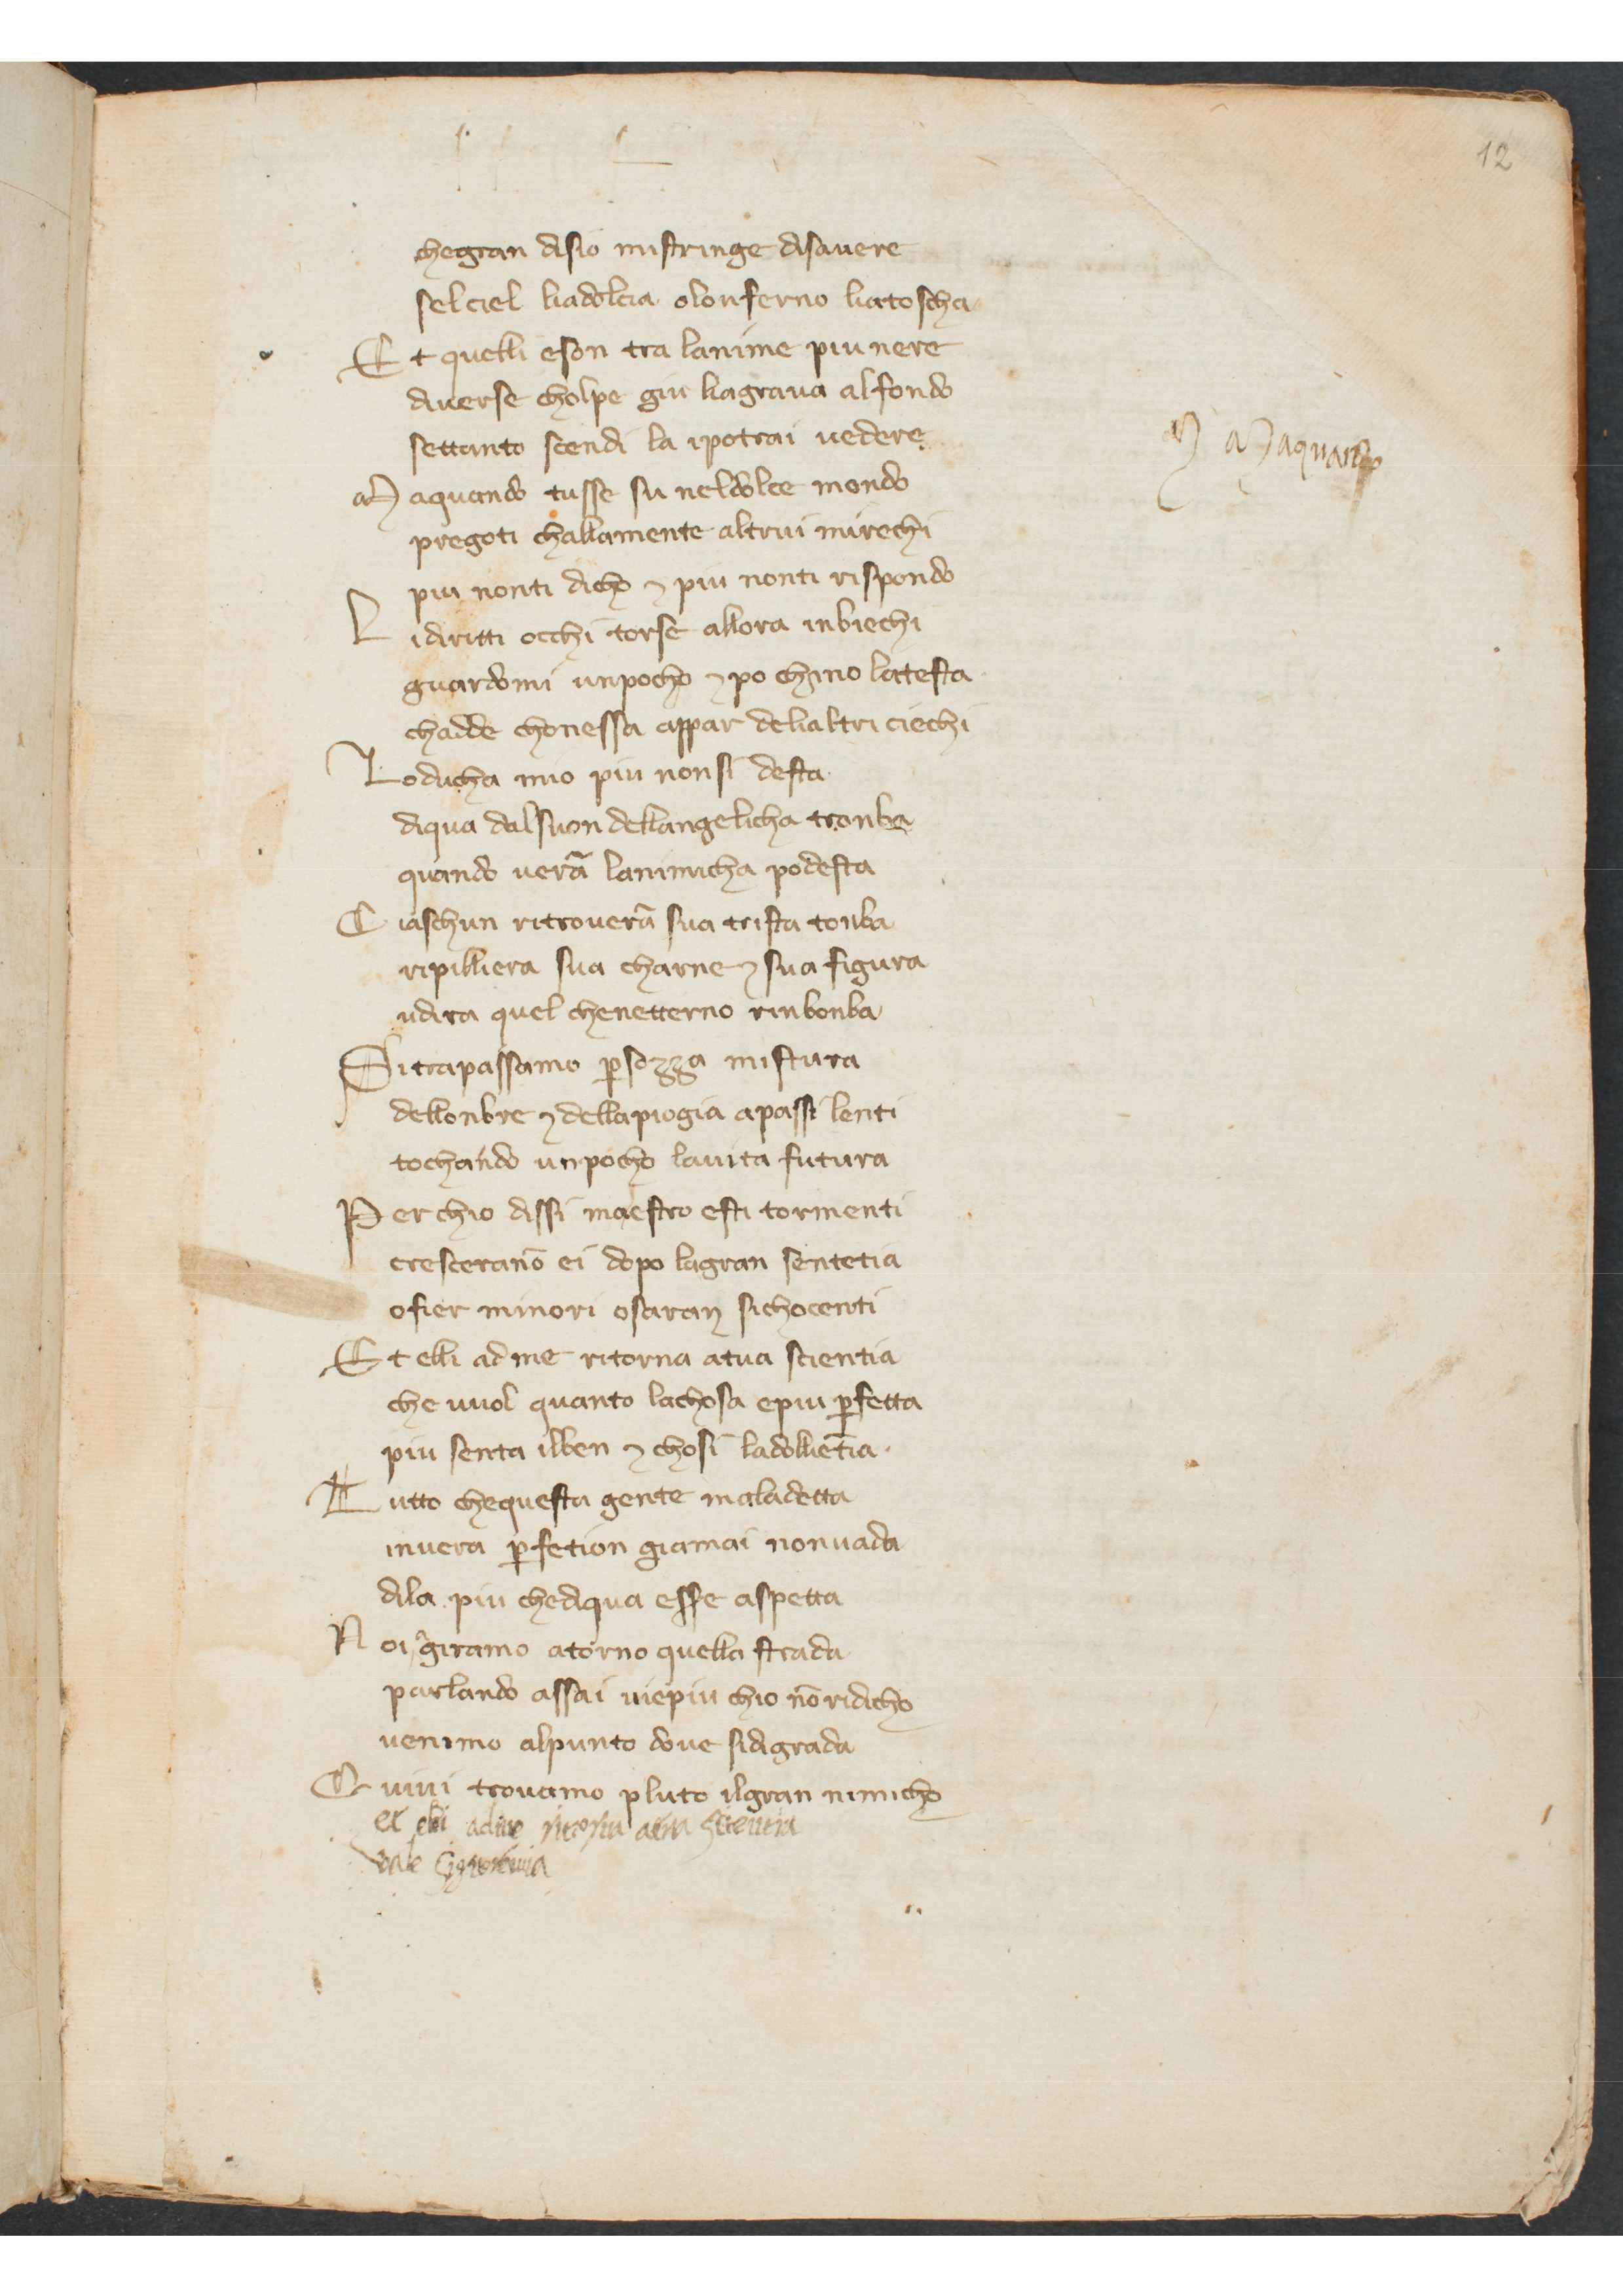 12
chegran disio mistringe disauere
selciel liadolcia olonferno liatoscha
Et quelli eson tra lanime piu nere
diuerse cholpe giu liagraua alfondo
settanto scendi la ipotrai uedere
Maquando tusse su neldolce mondo
M Maquando
pregoti challamente altrui mirechi
piu nonti dicho ⁊ piu nonti rispondo
Lidiritti occhi torse allora inbiechi
guardomi unpocho ⁊ po chino latesta
chadde chonessa appar delialtri ciechi
Loducha mio piu nonsi desta
diqua dalsuon dellangelicha tronba
quando uerā lanimicha podesta
Ciaschun ritrouerā sua trista tonba
ripilliera sua charne ⁊ sua figura
udira quel chenetterno rinbonba
Sitrapassamo ꝑsozza mistura
dellonbre ⁊ dellapiogia apassi lenti
tochando unpocho lauita futura
Perchio dissi maestro esti tormenti
cresceranō ei dopo lagran sentetia
ofier minori osaran sichocenti
Et elli ad me ritorna atua scientia
che uuol quanto lachosa epiu ꝑfetta
piu senta ilben ⁊ chosi ladolliētia
Tutto chequesta gente maladetta
inuera ꝑfetion giamai nonuada
dila piu chediqua esse aspetta
Noi giramo atorno quella strada
parlando assai uiepiu chio nō ridicho
uenimo alpunto doue sidigrada
Quiui trouamo pluto ilgran nimicho
et elli adme ritorna atua scientia